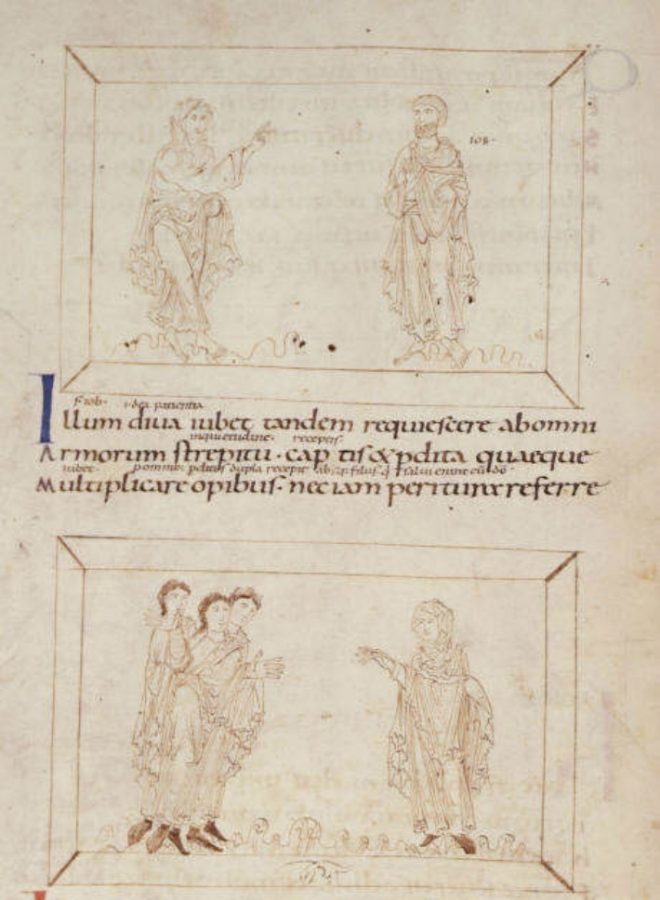 IOB·
s· iob· patientia
Illum diua iubet tandem requiescere abomni
inquietudine· receptis·
Armorum strepitu· cap tis & pdita quaeque
iubet· dupla recepit
Multiplicare opibus· nec iam peritura referre